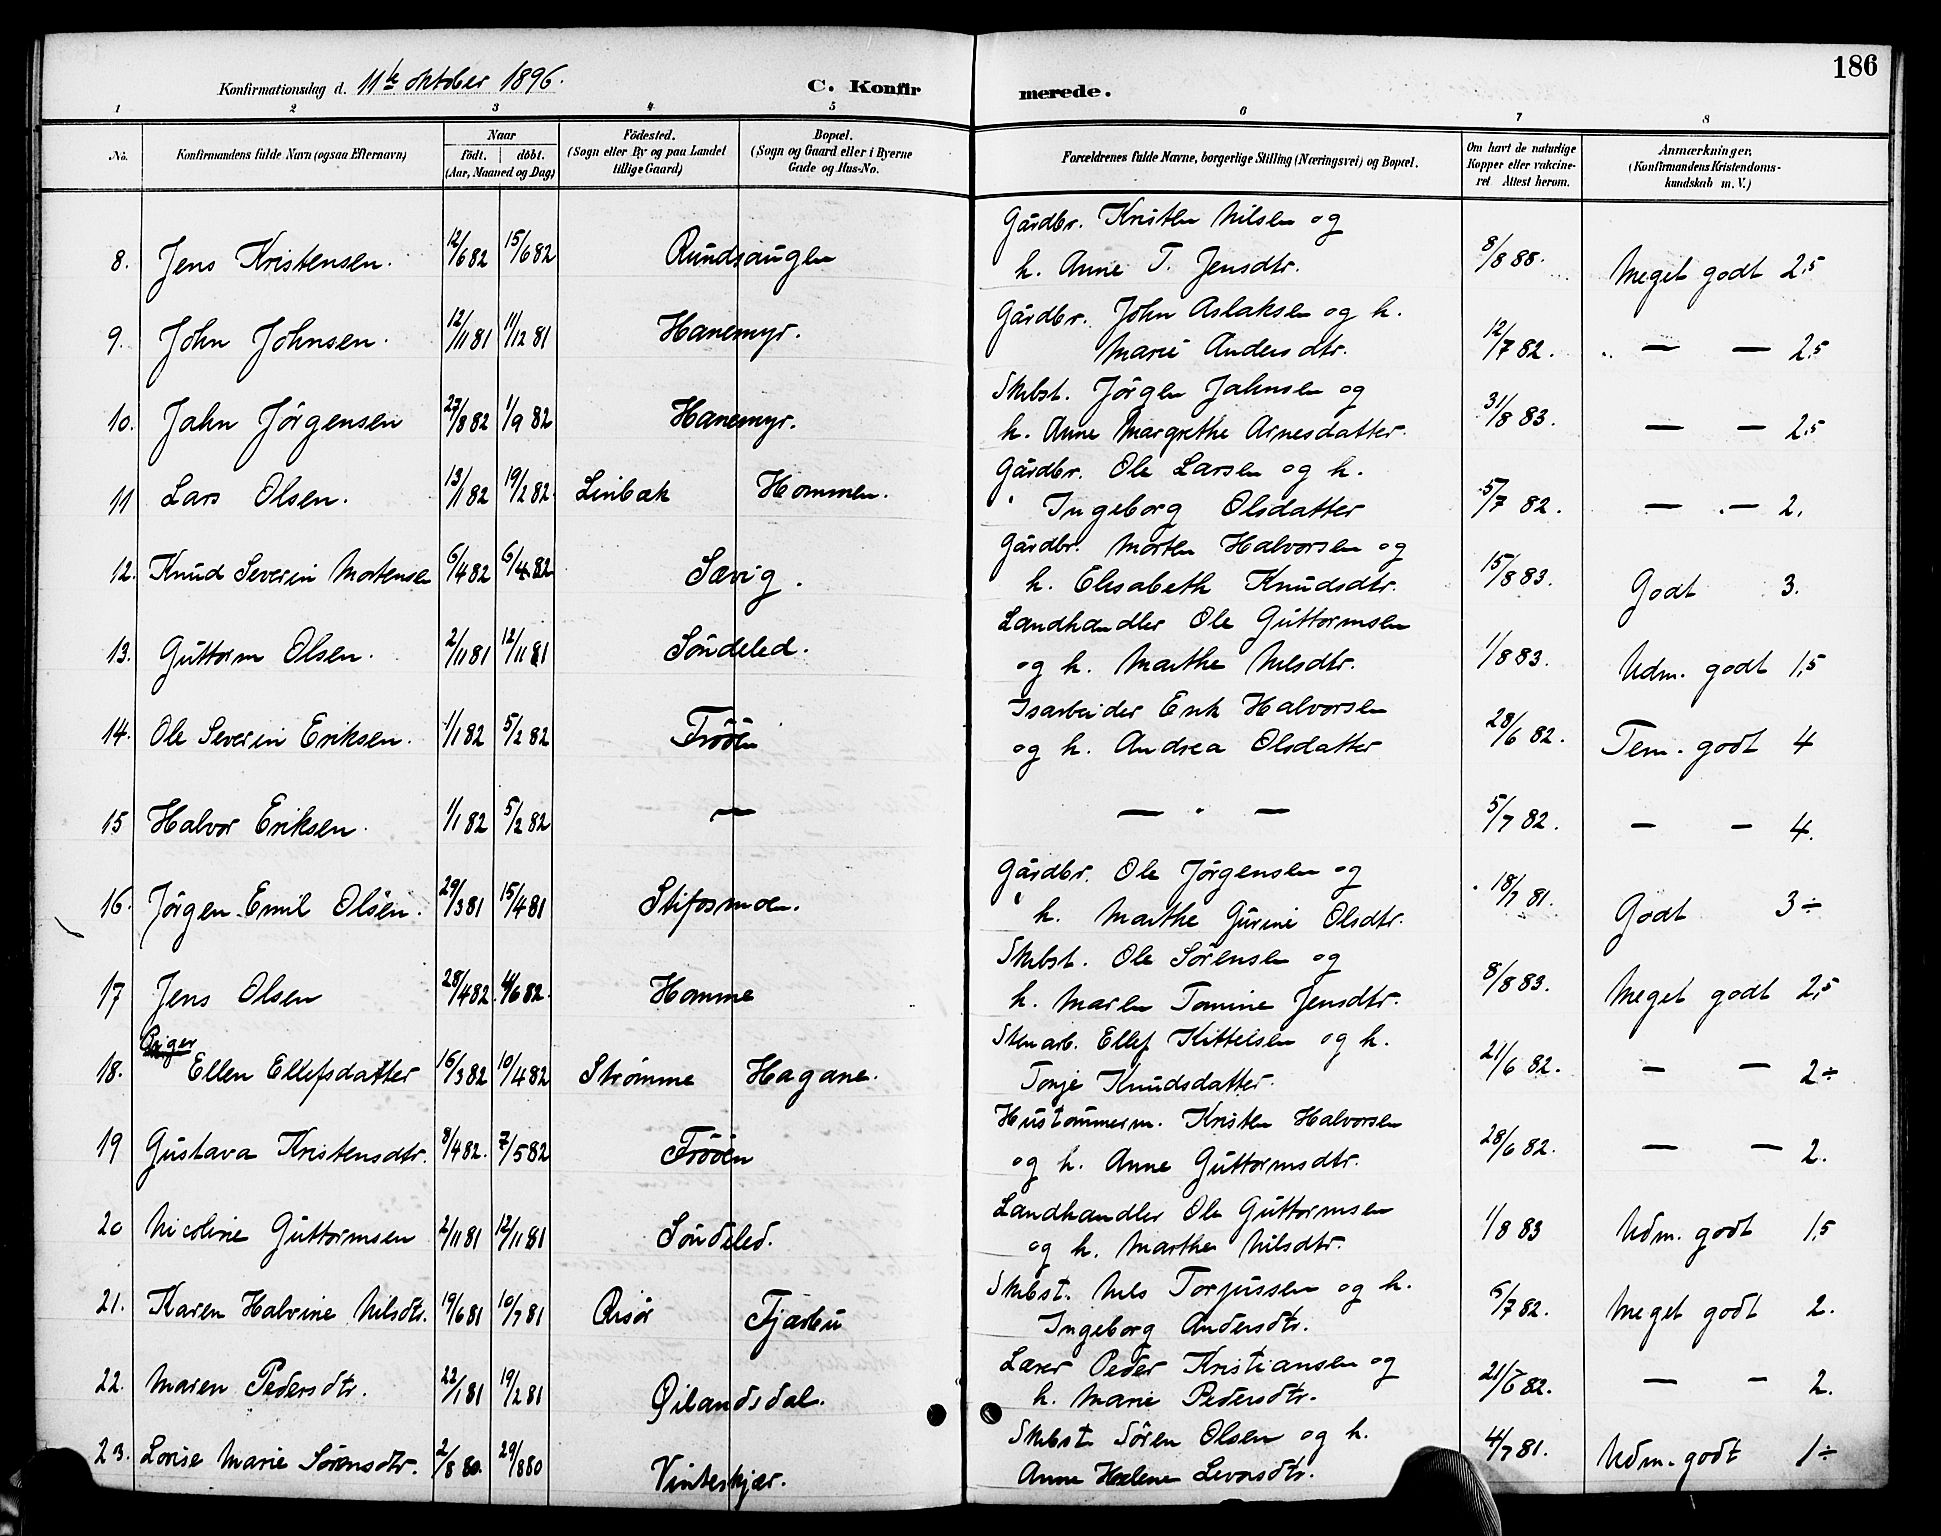 186
Konfirmationsdag d. 11te oktober 1896.
C. Konfirmerede.
1 2 3 4 5 6 7 8
No. Konfirmandens fulde Navn (ogsaa Efternavn) Naar født. døbt. (Aar, Maaned og Dag) Fødested. (Sogn eller By og paa Landet tillige Gaard) Bopæl. (Sogn og Gaard eller i Byerne Gade og Hus-No. Forældrenes fulde Navne, borgerlige Stilling (Næringsvei) og Bopæl. Om havt de naturlige Kopper eller vakcineret Attest herom. Anmærkninger. (Konfirmandens Kristendomskundskab m. V.)
Gårdbr. Kristen Nilsen og
8. Jens Kristensen. 12/6 82 15/6 82 Rundhaugen h. Anne T. Jensdtr. 8/8 88. Meget godt 2,5
Gårdbr. John Aslaksen og h.
9. John Johnsen. 12/11 81 11/12 81 Hanemyr. Marie Andersdtr. 12/7 82. — — 2,5
Skbst. Jörgen Jahnsen og
10. Jahn Jörgensen 27/8 82 1/9 82 Hanemyr. h. Anne Margrethe Arnesdatter. 31/8 83. — — 2,5
Gårdbr. Ole Larsen og h.
11 Lars Olsen. 13/1 82 19/2 82. Linbæk Hommen. Ingeborg Olsdatter 5/7 82. — — 2.
Gårdbr. Morten Halvorsen og
12. Knud Severin Mortensen 6/4 82 6/4 82 Sævig. h. Elisabeth Knudsdtr. 15/8 83. Godt 3.
Landhandler Ole Guttormsen
13. Guttorm Olsen. 2/11 81 12/11 81 Söndeled. og h. Marthe Nilsdtr. 1/8 83. Udm. godt 1,5
Isarbeider Erik Halvorsen
14. Ole Severin Eriksen. 1/1 82 5/2 82 Tröen og h. Andrea Olsdatter 28/6 82. Tem. godt 4
15 Halvor Eriksen. 1/1 82 5/2 82 — — " — 5/7 82. — — 4.
Gårdbr. Ole Jörgensen og
16. Jörgen Emil Olsen. 29/3 81 15/4 81 Stifosmoen. h. Marthe Gurine Olsdtr. 18/7 81. Godt 3÷
Skbst. Ole Sörensen og
17 Jens Olsen 28/4 82. 4/6 82. Homme h. Maren Tomine Jensdtr. 8/8 83. Meget godt 2,5
Piger
Stenarb. Ellef Kittelsen og h.
18. Ellen Ellefsdatter 16/3 82 10/4 82 Strømme Hagane. Tonje Knudsdatter. 21/6 82. — — 2÷
Hustømmerm. Kristen Halvorsen
19 Gustava Kristensdtr. 8/4 82. 7/5 82 Tröen og h. Anne Guttormsdtr. 28/6 82. — — 2.
Landhandler Ole Guttormsen
20 Nicoline Guttormsen 2/11 81 12/11 81 Söndeled. og h. Marthe Nilsdtr. 1/8 83 Udm. godt 1,5
Skbst. Nils Torjussen og h.
21. Karen Halvine Nilsdtr. 19/6 81 10/7 81 Risör Fjærbu Ingeborg Andersdtr. 6/7 82. Meget godt 2.
Lærer Peder Kristiansen og
22. Maren Pedersdtr. 22/1 81 19/2 81 Øilandsdal. h. Marie Pedersdtr. 21/6 82. — — 2.
Skbst Sören Olsen og h.
23. Lovise Marie Sørensdtr. 2/8 80. 29/8 80 Vinterkjær. Anne Helene Levorsdtr. 4/7 81. Udm. godt 1÷